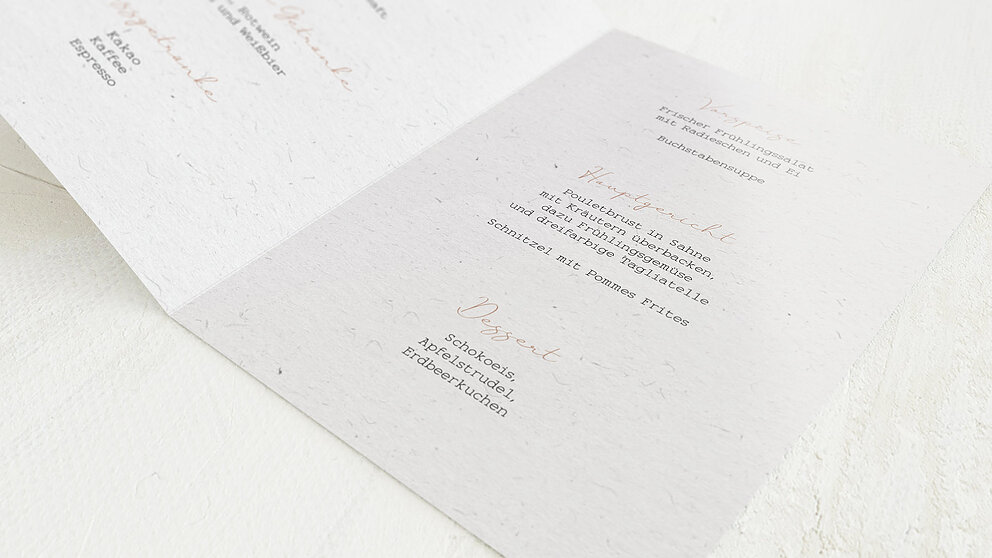 Getränke
Rotwein
und Weißbier
Kakao
Kaffee
Espresso
Vorspeise
Frischer Frühlingssalat
mit Radieschen und Ei
Buchstabensuppe
Hauptgericht
Pouletbrust in Sahne
mit Kräutern überbacken,
dazu Frühlingsgemüse
und dreifarbige Tagliatelle
Schnitzel mit Pommes Frites
Dessert
Schokoeis,
Apfelstrudel,
Erdbeerkuchen